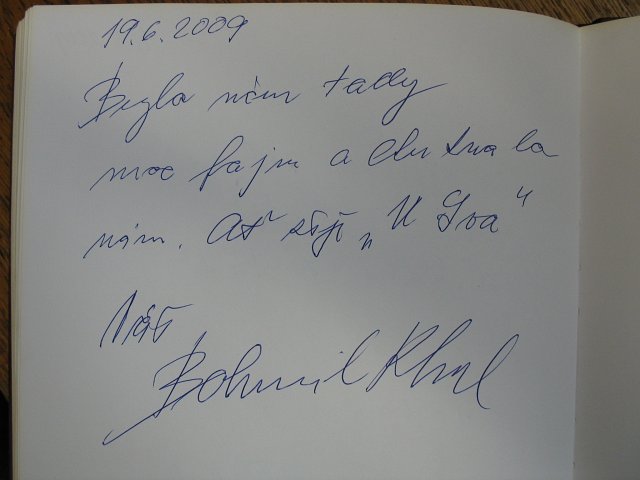 19.6.2009
Bylo nám tady
moc fajn a chutnalo
nám. Ať žije „U Lva“
Váš
Bohumil